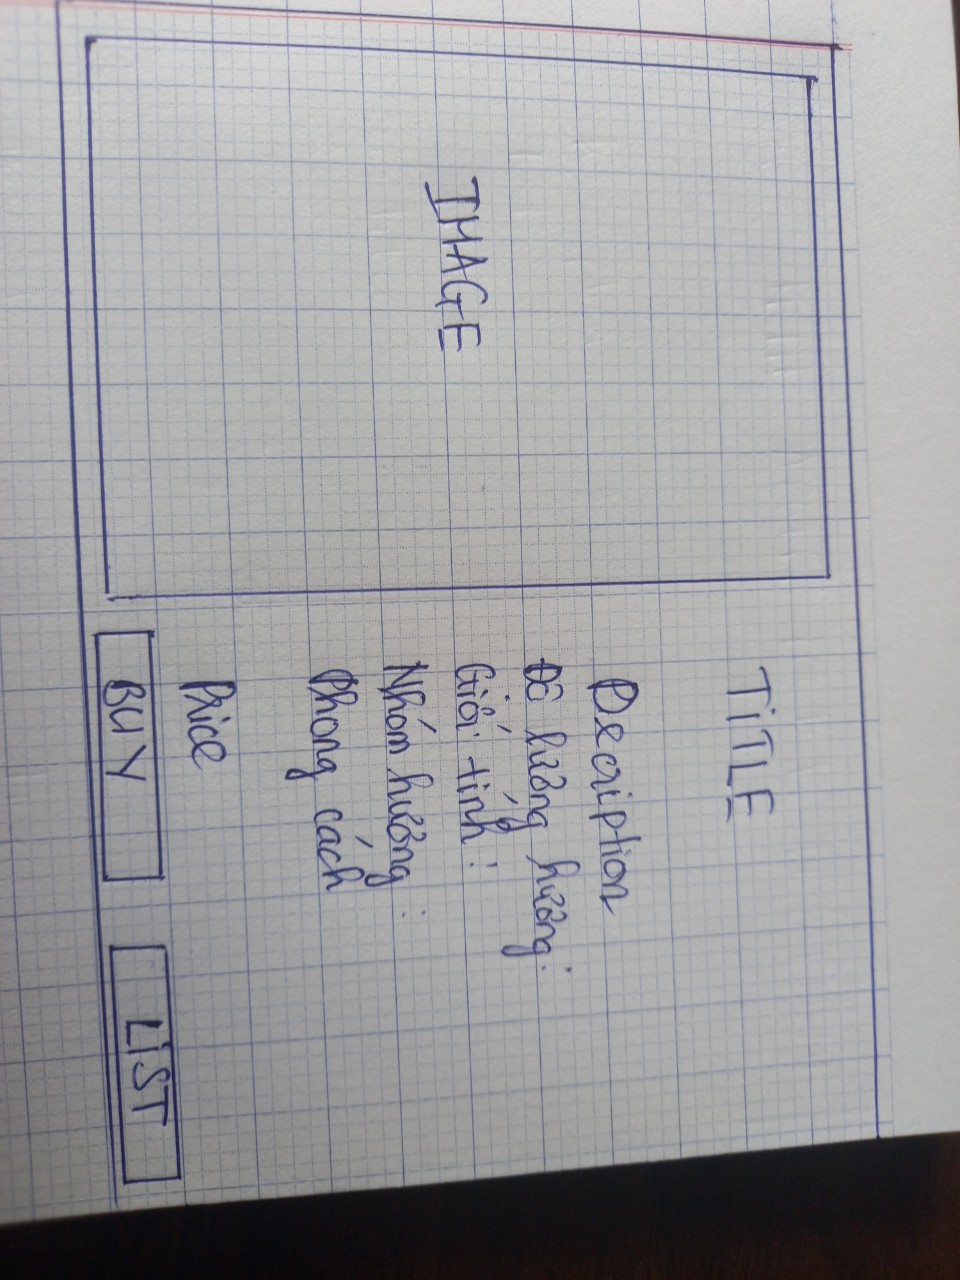 IMAGE
TiTLE
Decription
Độ lương hương:
Giới tính:
Nhóm hương:
Phong cách
Price
BUY
LiST